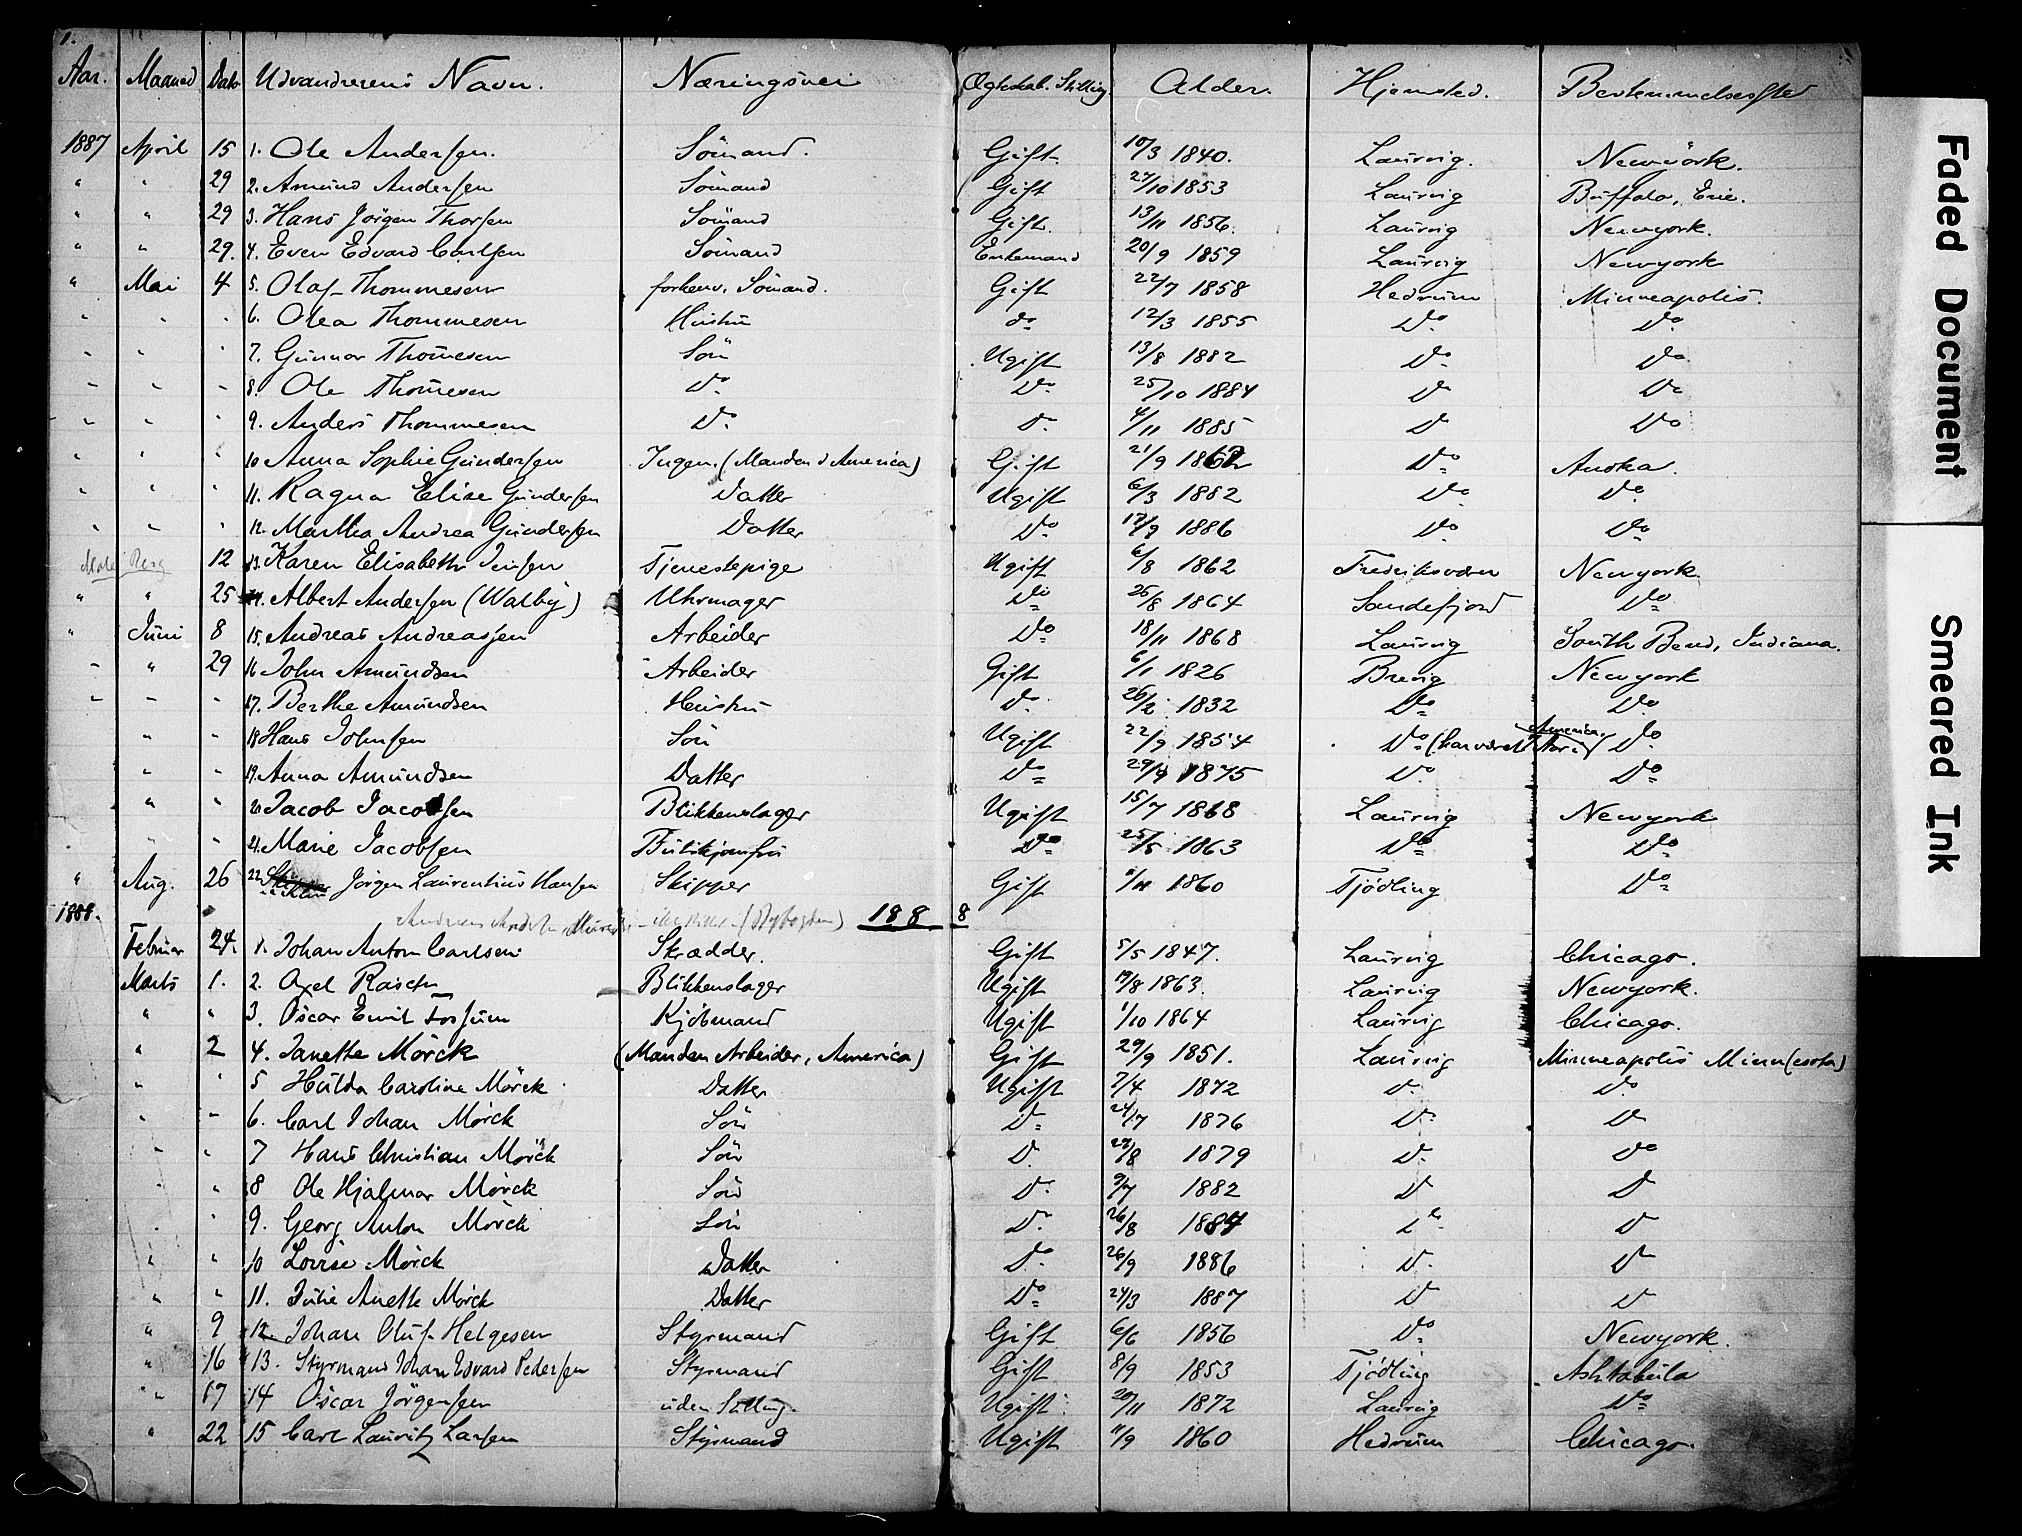 1.
Aar. Maaned Dato Udvandrerens Navn. Næringsvei Ægteskab. Stilling. Alder. Hjemsted. Bestemmelsessted
1887 April 15 1. Ole Andersen. Sömand. Gift. 10/3 1840. Laurvig. Newyork.
" " 29 2. Amund Andersen Sömand Gift 27/10 1853 Laurvig Buffalo, Erie.
" " 29 3. Hans Jörgen Thorsen Sömand Gift. 13/11 1856. Laurvig Newyork.
" " 29. 4. Even Edvard Carlsen Sömand Enkemand 20/9 1859 Laurvig Newyork
" Mai 4 5. Olaf Thommesen forhenv. Sömand. Gift 22/7 1858 Hedrum Minneapolis.
" " " 6. Olea Thommesen Hustru do 12/3 1855 Do. Do.
" " " 7. Gunnar Thom̄esen Sön Ugift 13/8 1882 Do Do
" " " 8. Ole Thom̄esen Do Do 25/10 1884 Do Do
" " " 9. Anders Thommesen Do D. 4/11 1885 Do Do
" " " 10 Anna Sophie Gundersen Ingen. (Manden i America) Gift 21/9 1862 Do Anoka.
" " " 11. Ragna Elise Gundersen Datter Ugift 6/3 1882 Do Do
" " " 12. Martha Andrea Gundersen Datter Do 12/9 1886 Do Do
12 13. Karen Elisabeth Jensen Tjenestepige Ugift 6/8 1862 Fredriksværn Newyork.
" " 25 14. Albert Andersen (Walby) Uhrmager Do 26/8 1864 Sandefjord Do
" Juni 8 15. Andreas Andreassen Arbeider Do 18/11 1868 Laurvig South Bend, Indiana.
" " 29 16 John Amundsen Arbeider Gift 6/1 1826 Brevig Newyork
" " " 17. Berthe Amundsen Hustru D. 26/2 1832 Do Do.
" " 18 Hans Johnsen Sön Ugift 22/9 1854 Do (har været i America för) Do.
" " 19. Anna Amundsen Datter Do 29/4 1875 Do. Do
" " 20 Jacob Jacobsen Blikkenslager Ugift 15/7 1868 Laurvig Newyork
" " 21. Marie Jacobsen Butikjomfru Do 25/5 1863 Do Do
" Aug. 26 22 Jörgen Laurentius Hansen Skipper Gift 1860 Tjödling Do
1888. 1888
Februar 24. 1. Johan Anton Carlsen Skrædder. Gift 5/5 1847. Laurvig Chicago.
Marts 1. 2. Axel Rasch Blikkenslager Ugift 19/8 1863. Laurvig Newyork.
" " 3. Oscar Emil Fossum Kjöbmand Ugift 1/10 1864 Laurvig Chicago.
" 2 4. Janette Mörck (Manden Arbeider, America) Gift 29/9 1851. Laurvig Minneapolis Minn(esota)
" " 5 Hulda Caroline Mörck Datter Ugift 7/4 1872 D. Do
" " 6. Carl Johan Mörck Sön D. 24/7 1876 D. D
" " 7 Hans Christian Mörck Sön D. 29/8 1879 D. Do
" " 8 Ole Hjalmar Mörck Sön D. 9/7 1882 D D
" " 9. Georg Anton Mörck Sön D. 26/8 1884 Do D
" " 10 Lovise Mörck Datter D. 26/9 1886 D. D
" " 11. Julie Anette Mörck Datter Do 24/3 1887 D D
" 9 12 Johan Oluf Helgesen Styrmand Gift 6/6 1856 Do Newyork.
" 16 13. Styrmand Johan Edvard Pedersen Styrmand Gift 8/9 1853 Tjödling Ashtabula
" 17 14 Oscar Jörgensen uden Stilling. Ugift 20/11 1872 Laurvig Do
" 22 15 Carl Lauritz Larsen Styrmand Ugift 11/9 1860 Hedrum Chicago.
Faded Document
Smeared Ink